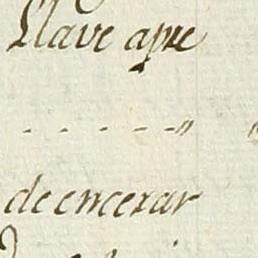 Llave apre
- - - - - - "
de encerar